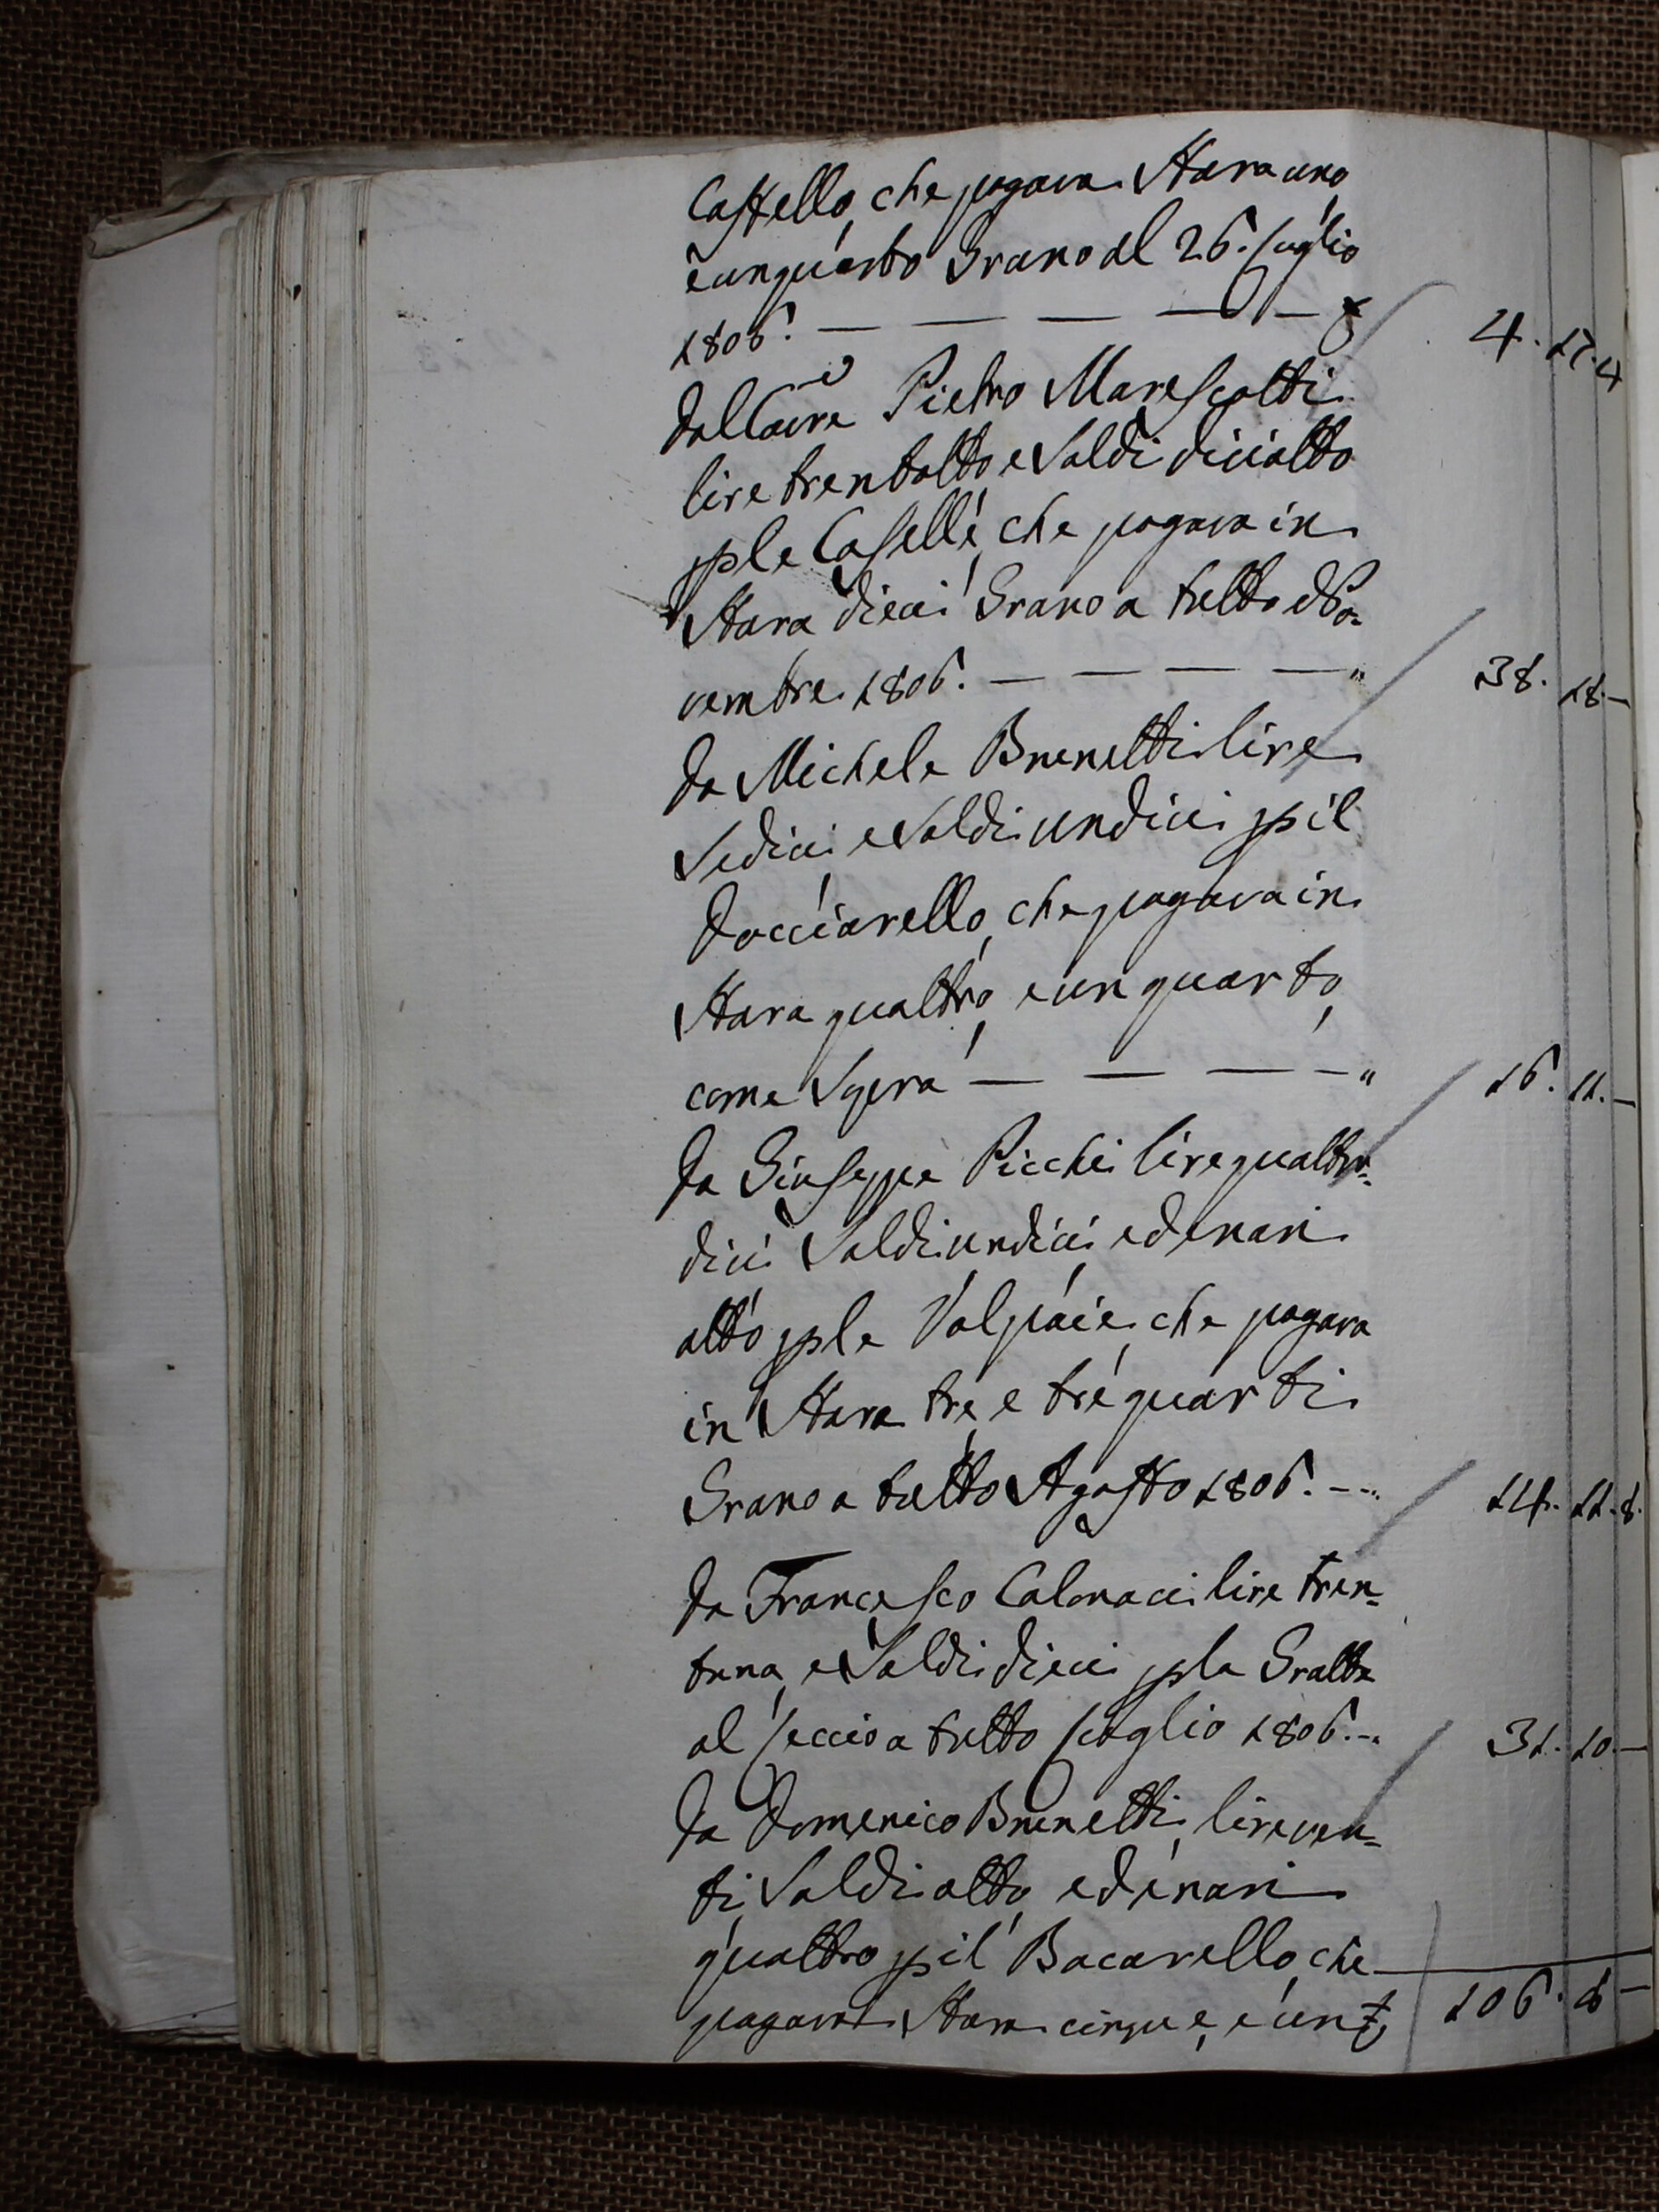 Castello, che pagava Stara uno,
e un quarto Grano al 26. Luglio
1806. — — — — — £ 4. 17. 4
Dal Cav.e Pietro Marescotti
lire trentotto, e Soldi diciotto
p le Caselle, che pagava in
Stara dieci Grano a tutto No=
vembre 1806. — — — — " 38. 18. —
Da Michele Brunetti lire
Sedici, e Soldi undici p il
Docciarello, che pagava in
Stara quattro, e un quarto,
come Sopra — — — — " 16. 11. —
Da Giuseppe Picchi lire quattor=
dici Soldi undici, e denari
otto p le Volpaie, che pagava
in Stara tre, e tre quarti
Grano a tutto Agosto 1806. — " 14. 11. 8.
Da Francesco Calonaci lire tren=
tuna, e Soldi dieci p la Grotta
al Leccio a tutto Luglio 1806. — " 31. 10. —
Da Domenico Brunetti, lire ven=
ti, Soldi otto, e denari
quattro p il Bacarello, che
pagava Stara cinque, e un 106. 8 —